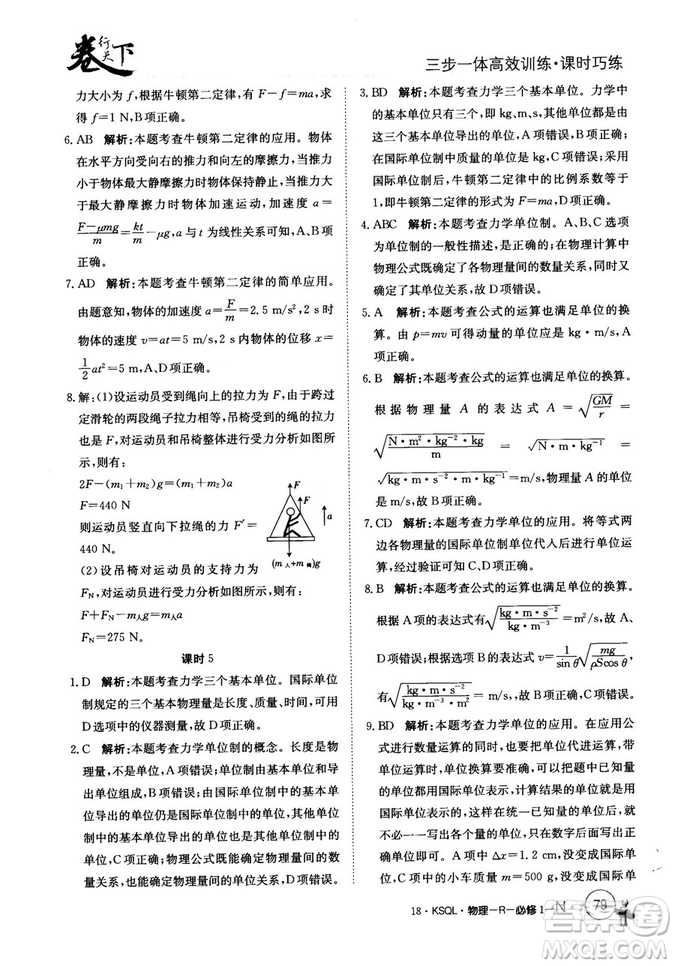 卷行天下
三步一体高效训练·课时巧练
力大小为 f,根据牛顿第二定律,有 F-f=ma,求得:f=1 N,B项正确。
6. AB 解析:本题考查牛顿第二定律的应用。物体
在水平方向受向右的推力和向左的摩擦力,当推力
小于物体最大静摩擦力时物体保持静止,当推力大
于最大静摩擦力时物体做加速运动,加速度 a=
(F-μmg)/m=kt/m-μg,a 与 t 为线性关系,B项正确。
7. AD 解析:本题考查牛顿第二定律的简单应用。
由题意知,物体的加速度 a=F/m=2.5 m/s²,2 s 时
物体的速度 v=at=5 m/s,2 s内物体的位移 x=
1/2 at²=5 m,A、D项正确。
8. 解:(1)设运动员受到绳向上的拉力为 F,由于跨过
定滑轮的两段绳子拉力相等,吊椅受到绳的拉力也
是 F。对运动员和吊椅整体进行受力分析如图所
示,则有:
2F-(m₁+m₂)g=(m₁+m₂)a
F=440 N
则运动员竖直向下拉绳的力 F′=
440 N。
(2)设吊椅对运动员的支持力为
F_N,对运动员进行受力分析则有:
F+F_N-m人g=m人a
F_N=275 N。
F F a
(m人+m椅)g
课时 5
1. D 解析:本题考查三个基本单位。国际单位
制规定的三个基本物理量是长度、质量、时间,可用
D选项中的仪器测量,故 D项正确。
2. C 解析:本题考查力学单位制的概念。长度是物
理量,不是单位,A项错误;国际单位制中的基本单
位和导出单位都是国际单位制中的单位,而由基本
单位导出的单位仍是国际单位制中的单位,但不是
国际单位制中的基本单位,B项错误,由基本单位
导出的单位不一定都是国际单位制中的导出单位,
单位,C项正确;物理公式既能确定物理量间的数
量关系,又能确定物理量间的单位关系,D项错误。
3. BD 解析:本题考查力学三个基本单位。力学中
的基本单位只有 kg、m、s,其他都是导出单位或者
由这三个基本单位导出的单位,A项错误,B项正
确;在国际单位制中,质量的单位是 kg,C项错误;采用
国际单位制后,牛顿第二定律中的比例系数等于
1,即牛顿第二定律的形式为 F=ma,D项正确。
4. ABC 解析:本题考查力学单位制。A、B、C选项
为单位制的一般性描述,均正确;在物理计算中
物理公式既确定了各物理量间的数量关系,又确定
了物理量间的单位关系,D项错误。
5. A 解析:本题考查公式的运算也满足单位的换
算。由 p=mv 可得动量的单位为 kg·m/s,A项
正确。
6. B 解析:本题考查公式的运算也满足单位的换算。
根据物理量 A 的表达式 A=√(GM/r)=
√(N·m²·kg⁻²·kg/m)=√(N·m·kg⁻¹)=
√(kg·m·s⁻²·m·kg⁻¹)=m/s,物理量 A 的单位
是 m/s,故 B项正确。
7. CD 解析:本题考查力学单位的应用。将等式两
边各物理量的国际单位制单位代入后进行单位运
算,经过验证可知 C、D项正确。
8. B 解析:本题考查公式的运算也满足单位的换算。
根据 A 项的表达式有√(kg·m·s⁻²/kg·m⁻³)=m²/s,故 A、C、
D项错误;根据 B 项的表达式 v=1/sin θ √(mg/ρScos θ),
有√(kg·m·s⁻²/kg·m⁻³·m²)=m/s,B项正确。
9. BD 解析:本题考查力学单位的应用。在应用公
式进行数量运算的同时,也要把单位代进运算。带
单位运算时,单位换算要准确。可以把题中已知量
的单位都用国际单位表示,计算结果的单位就是用
国际单位表示的,这样在统一已知量的单位后,就
不必一一写出各个量的单位,只在数字后面写出正
确单位即可。A项中 Δx=1.2 cm,没变成国际单
位,C项中质量 m=500 g,没变成国际单位制单
18·KSQL·物理-R-必修1-N
79
答案圈
MXQE.COM